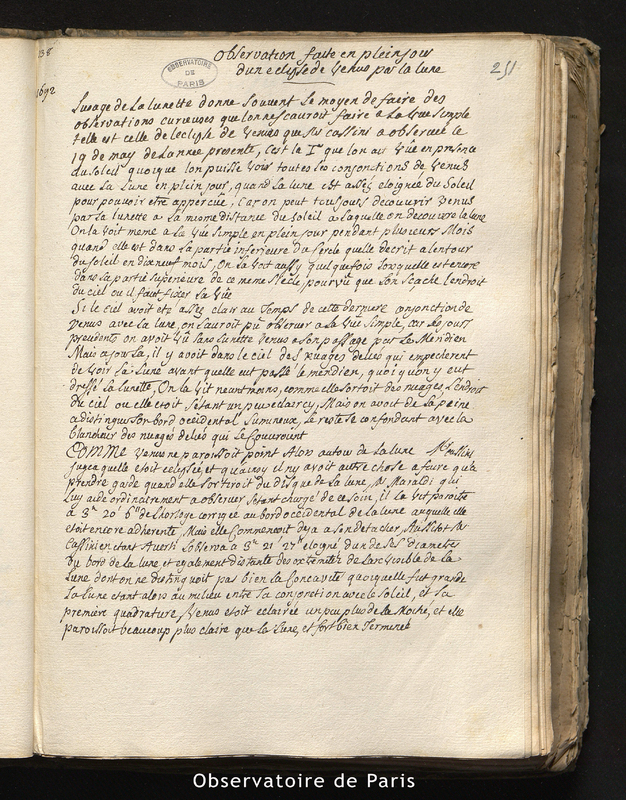 238
1692
Observation faite en plein jour
dun eclypse de Venus par la lune
251
OBSERVATOIRE
DE
PARIS
Lusage de La lunette donne souvent Le moyen de faire des
observations curieuses que lon ne scauroit faire a La Vüe simple
telle est celle de leclypse de Venus que Mr cassini a observée le
19 de may de Lannee presente, C'est le Ir que lon ait Vüe en presence
du soleil quoique lon puisse Voir toutes les conjonctions de Venus
avec La Lune en plein jour, quand La lune est assés eloignée du Soleil
pour pouvoir etre appercüe, Car on peut toujours decouvrir Venus
par La lunette a La mesme distance du soleil a laquelle on decouvre la lune
On la Voit meme a La Vüe simple en plein jour pendant plusieurs Mois
quand elle est dans La partie inferieure du Cercle quelle decrit alentour
du soleil en dixneuf mois, On La Voit aussy quelquefois Lorsquelle est encore
dans La partie superieure de ce meme Cercle, pourvüe que lon scache Lendroit
du ciel ou il faut fixer La Vüe
Si le ciel avoit eté assés clair au Temps de cette derniere conjonction de
Venus avec La lune, on l'auroit pü observer a La Vüe simple, car les jours
precedents on avoit Vü sans Lunette Venus a son passage par Le Meridien
Mais a jour La, il y avoit dans le ciel des Nuages deliés qui empecherent
de Voir La Lune avant quelle eut passé le meridien, quoi quon y eut
dressé la lunette, On La Vit neantmoins, comme elle sortoit des nuages, Lendroit
du ciel ou elle etoit setant un peu eclaircy, Mais on avoit de La peine
a distinguer son bord occidental Lumineux, Le reste se confondant avec la
blancheur des nuages deliés qui Le Couvroient
COMME Venus ne paroissoit point Alors autour de La Lune Mr Cassini
jugea quelle etoit eclypsée, et quainsy il ny avoit autre chose a faire qua
prendre garde quand elle sortiroit du disque de La lune, Mr Maraldi qui
Luy aide ordinairement a observer setant chargé de ce soin, il La Vit paroitre
a 3h 20' de Lhorloge corrigée au bord occidental de La lune auquelle elle
etoit encore adherente, Mais elle Commencoit deja a sen detacher, Aussitot Mr
Cassini en etant Averti Lobserva a 3h 21' 27" eloigné dun de Ses diametres
du bord de La lune et egalement distante des extremitez de Larc Visible de La
Lune dont on ne distinguoit pas bien La Concavité quoiquelle fut grande
La Lune etant alors au milieu entre Sa conjonction avec le Soleil, et Sa
premiere quadrature, Venus etoit eclairée un peu plus de La Moitié, et elle
paroissoit beaucoup plus claire que La Lune, et fort bien Terminée
Observatoire de Paris